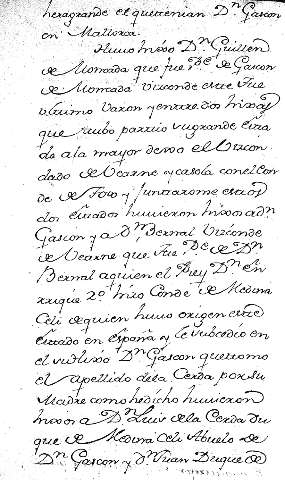 hera grande el que tenian Dn. Gascon
en Mallorca
Huuo hixo Dn. Guillen
de Moncada que fue Pe. de Gascon
de Moncada Vizconde este fue
ultimo Varon y entre dos hixas
que hubo partio su grande esta
do a la mayor de
dado de Vearne y casola con el Con
de de Foix y juntaronse estos
dos estados huuieron hixo a dn.
Gascon y a dn. Bernal Vizconde
de Vearne que fue Pe. de Dn.
Bernal a quien el Rey Dn. En
rrique 2o. hizo Conde de Medina
Celi de quien huuo origen este
estado en españa y le subcedio en
el su hixo Dn. Gascon que tomo
el apellido dela Cerda por su
Madre como he dicho huuieron
hixo a Dn. Luis dela Cerda Du
que de Medina Celi Abuelo de
Dn. Gascon y dn. Juan Duque de